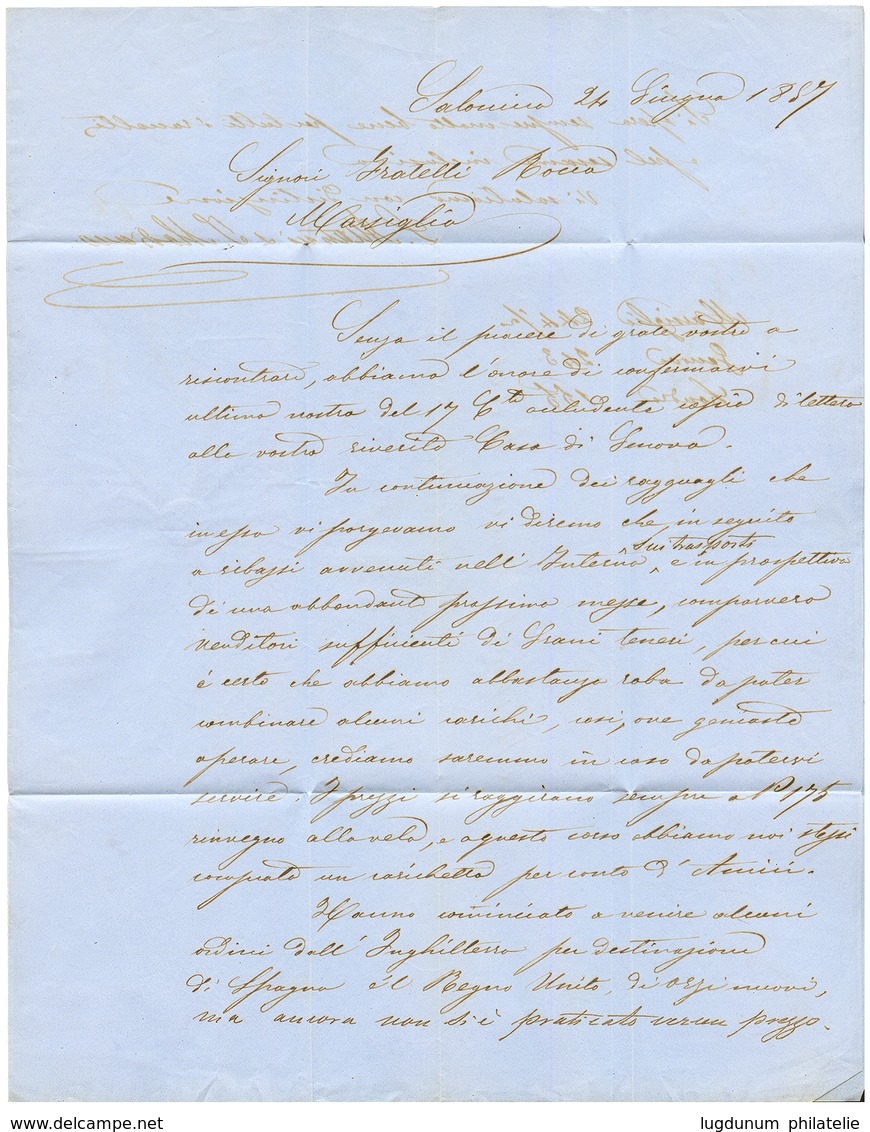 Salonicco 24 Giugno 1857
Signori Fratelli Rocca
Marsiglia
Senza il piacere di grate vostre a
riscontrare, abbiamo l'onore di confermarvi
ultima nostra del 17 Cte accludente copia di lettera
alla vostra riverita Casa di Genova.
In continuazione dei ragguagli che
in essa vi porgevamo vi diremo che, in seguito
a ribassi avvenuti nell'Interno, sui trasporti e in prospettiva
di una abbondante prossima messe, comparvero
venditori sufficienti di Grani teneri, per cui
è certo che abbiamo abbastanza roba da poter
combinare alcuni carichi, così, ove geniaste
operare, crediamo saremmo in caso da potervi
servire. I prezzi si raggirano sempre a P 175
rinvegno alla vela, e a questo corso abbiamo noi stessi
comprato un carichetto per conto d'Amici.
Hanno cominciato a venire alcuni
ordini dall'Inghilterra per destinazione
di Spagna e il Regno Unito, di orzi nuovi,
ma ancora non si è praticato verun prezzo.
delcampe.net
lugdunum philatelie